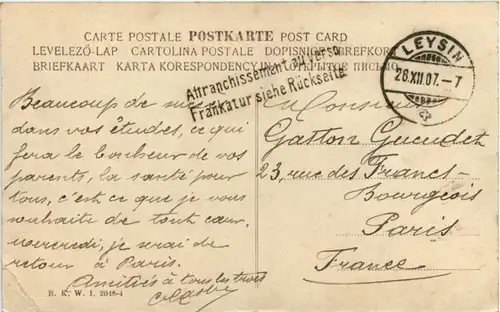 CARTE POSTALE POSTKARTE POST CARD
LEVELEZŐ-LAP CARTOLINA POSTALE DOPISNICE BREFKORT
BRIEFKAART KARTA KORESPONDENCYJNA ОТКРЫТОЕ ПИСЬМО
Affranchissement au verso
Frankatur siehe Rückseite
LEYSIN
26.XII.07. - 7
Beaucoup de
dans vos études, ce qui
fera le bonheur de vos
parents, la santé pour
tous, c'est ce que je vous
souhaite de tout cœur.
mercredi, je serai de
retour à Paris.
Amitiés à tous les trois
Monsieur
Gaston Gueudet
23, rue des Francs-
Bourgeois
Paris
France
B. K. W. I. 2048-4